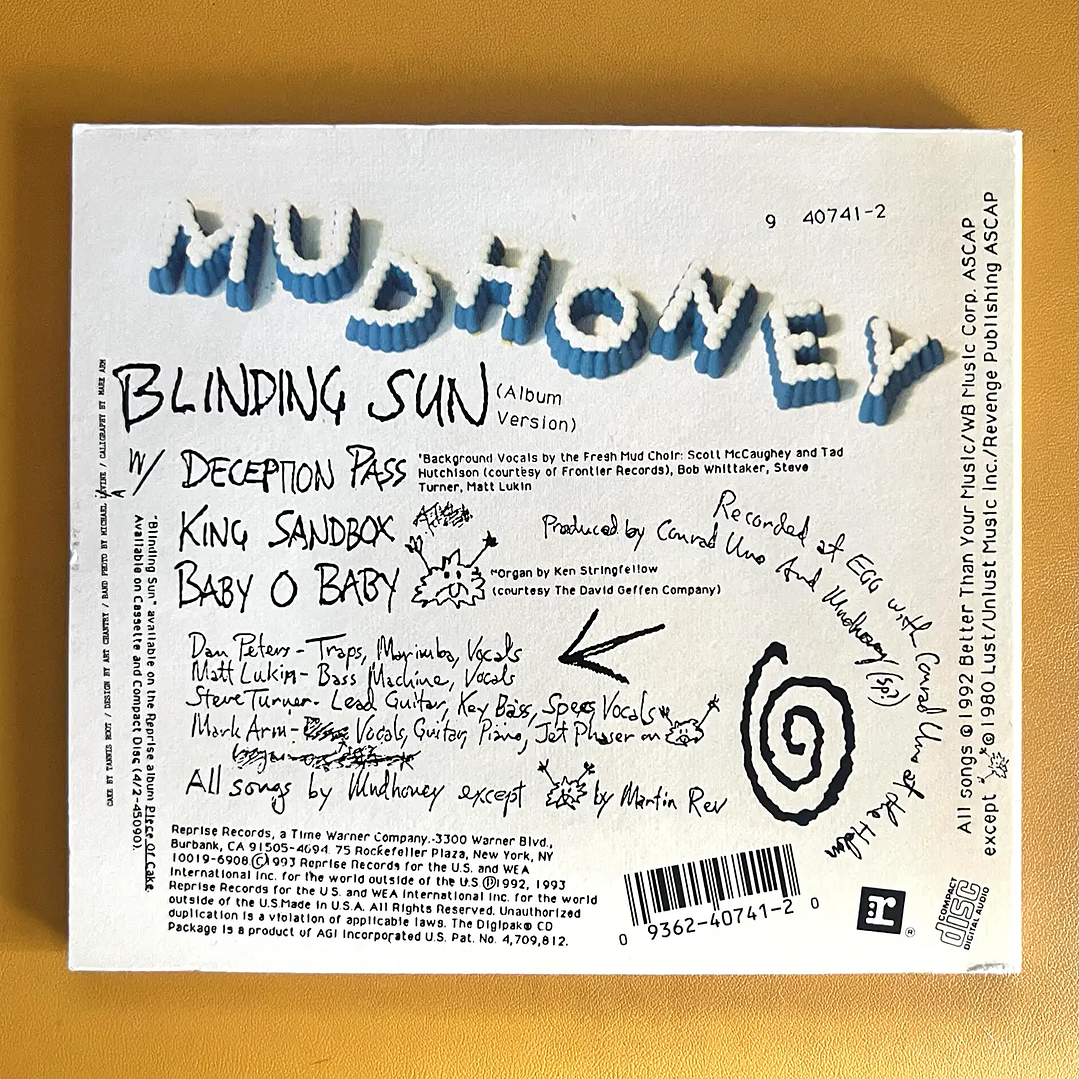 MUDHONEY
9 40741-2
BLINDING SUN (Album
Version)
W/ DECEPTION PASS
*Background Vocals by the Fresh Mud Choir: Scott McCaughey and Tad
Hutchison (courtesy of Frontier Records), Bob Whittaker, Steve
Turner, Matt Lukin
A
KING SANDBOX
BABY O BABY
*Organ by Ken Stringfellow
(courtesy The David Geffen Company)
Produced by Conrad Uno And Mudhoney (sp?)
Recorded at EGG with Conrad Uno at the Helm
Dan Peters - Traps, Marimba, Vocals
Matt Lukin - Bass Machine, Vocals
Steve Turner - Lead Guitar, Key Bass, Spees Vocals
Mark Arm - Vocals, Guitar, Piano, Jet Phaser on
All songs by Mudhoney except by Martin Rev
Reprise Records, a Time Warner Company.-3300 Warner Blvd.,
Burbank, CA 91505-4694. 75 Rockefeller Plaza, New York, NY
10019-6908.Ⓒ1993 Reprise Records for the U.S. and WEA
International Inc. for the world outside of the U.S.Ⓟ1992, 1993
Reprise Records for the U.S. and WEA International Inc. for the world
outside of the U.S.Made in U.S.A. All Rights Reserved. Unauthorized
duplication is a violation of applicable laws. The Digipak® CD
Package is a product of AGI Incorporated U.S. Pat. No. 4,709,812.
0 9362-40741-2 0
r
®
COMPACT
disc
DIGITAL AUDIO
CAKE BY TANNIS ROOT / DESIGN BY ART CHANTRY / BAND PHOTO BY MICHAEL LAVINE / CALIGRAPHY BY MARK ARM
"Blinding Sun" available on the Reprise album Piece Of Cake.
Available on Cassette and Compact Disc (4/2-45090).
All songs ©1992 Better Than Your Music/WB Music Corp. ASCAP
except *©1980 Lust/Unlust Music Inc./Revenge Publishing ASCAP